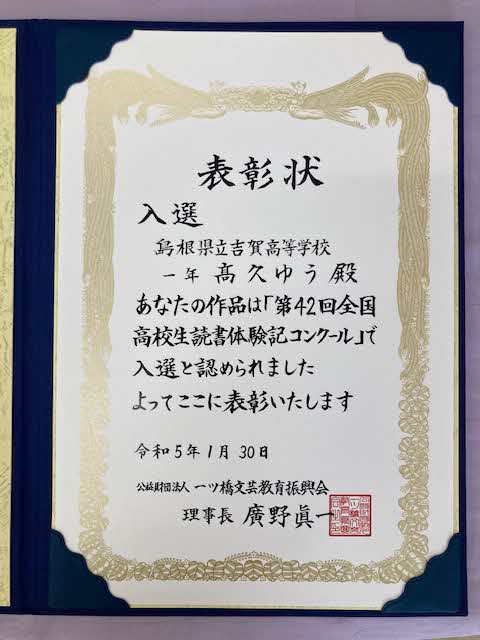 表彰状
入選
島根県立吉賀高等学校
一年 髙久ゆう 殿
あなたの作品は「第42回全国
高校生読書体験記コンクール」で
入選と認められました
よってここに表彰いたします
令和5年1月30日
公益財団法人 一ツ橋文芸教育振興会
理事長 廣野眞一